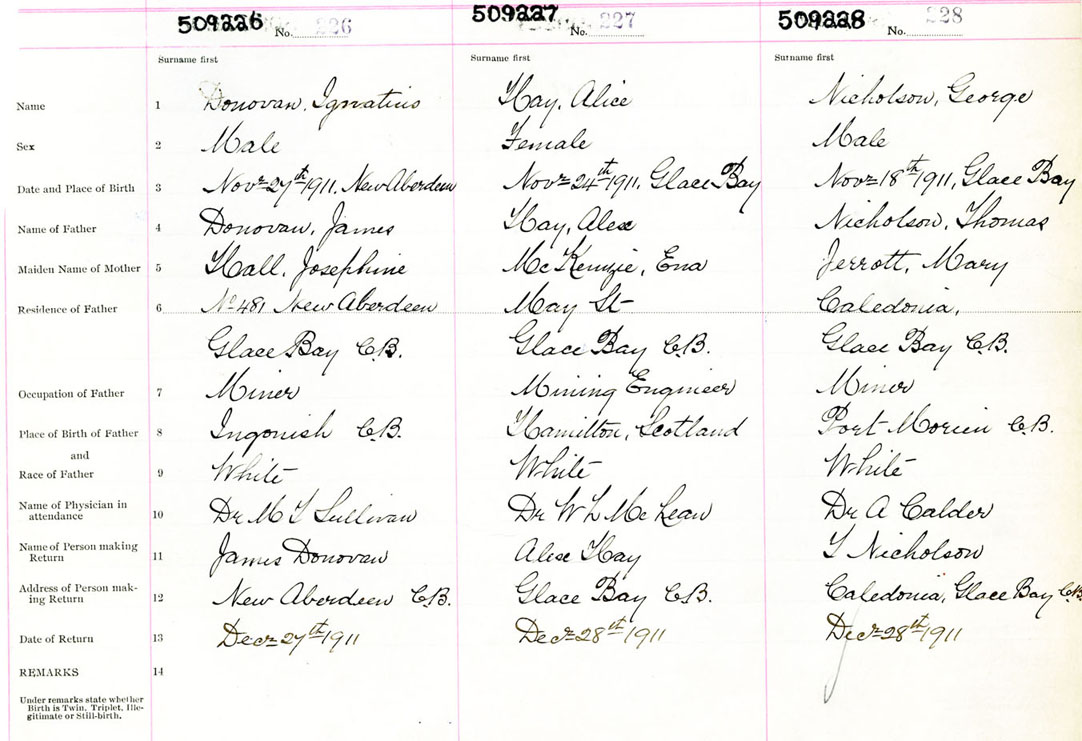 509226 No. 226 509227 No. 227 509228 No. 228
Surname first Surname first Surname first
Name 1 Donovan, Ignatius Hay, Alice Nicholson, George
Sex 2 Male Female Male
Date and Place of Birth 3 Novr 27th 1911, New Aberdeen Novr 24th 1911, Glace Bay Novr 18th 1911, Glace Bay
Name of Father 4 Donovan, James Hay, Alex Nicholson, Thomas
Maiden Name of Mother 5 Hall, Josephine McKenzie, Ena Jerrott, Mary
Residence of Father 6 No 481 New Aberdeen May St Caledonia,
Glace Bay C.B. Glace Bay C.B. Glace Bay C.B.
Occupation of Father 7 Miner Mining Engineer Miner
Place of Birth of Father 8 Ingonish C.B. Hamilton, Scotland Port Morien C.B.
and
Race of Father 9 White White White
Name of Physician in
attendance 10 Dr M T Sullivan Dr W L McLean Dr A Calder
Name of Person making
Return 11 James Donovan Alex Hay T Nicholson
Address of Person mak-
ing Return 12 New Aberdeen C.B. Glace Bay C.B. Caledonia, Glace Bay C.B.
Date of Return 13 Decr 27th 1911 Decr 28th 1911 Decr 28th 1911
REMARKS 14
Under remarks state whether
Birth is Twin, Triplet, Ille-
gitimate or Still-birth.